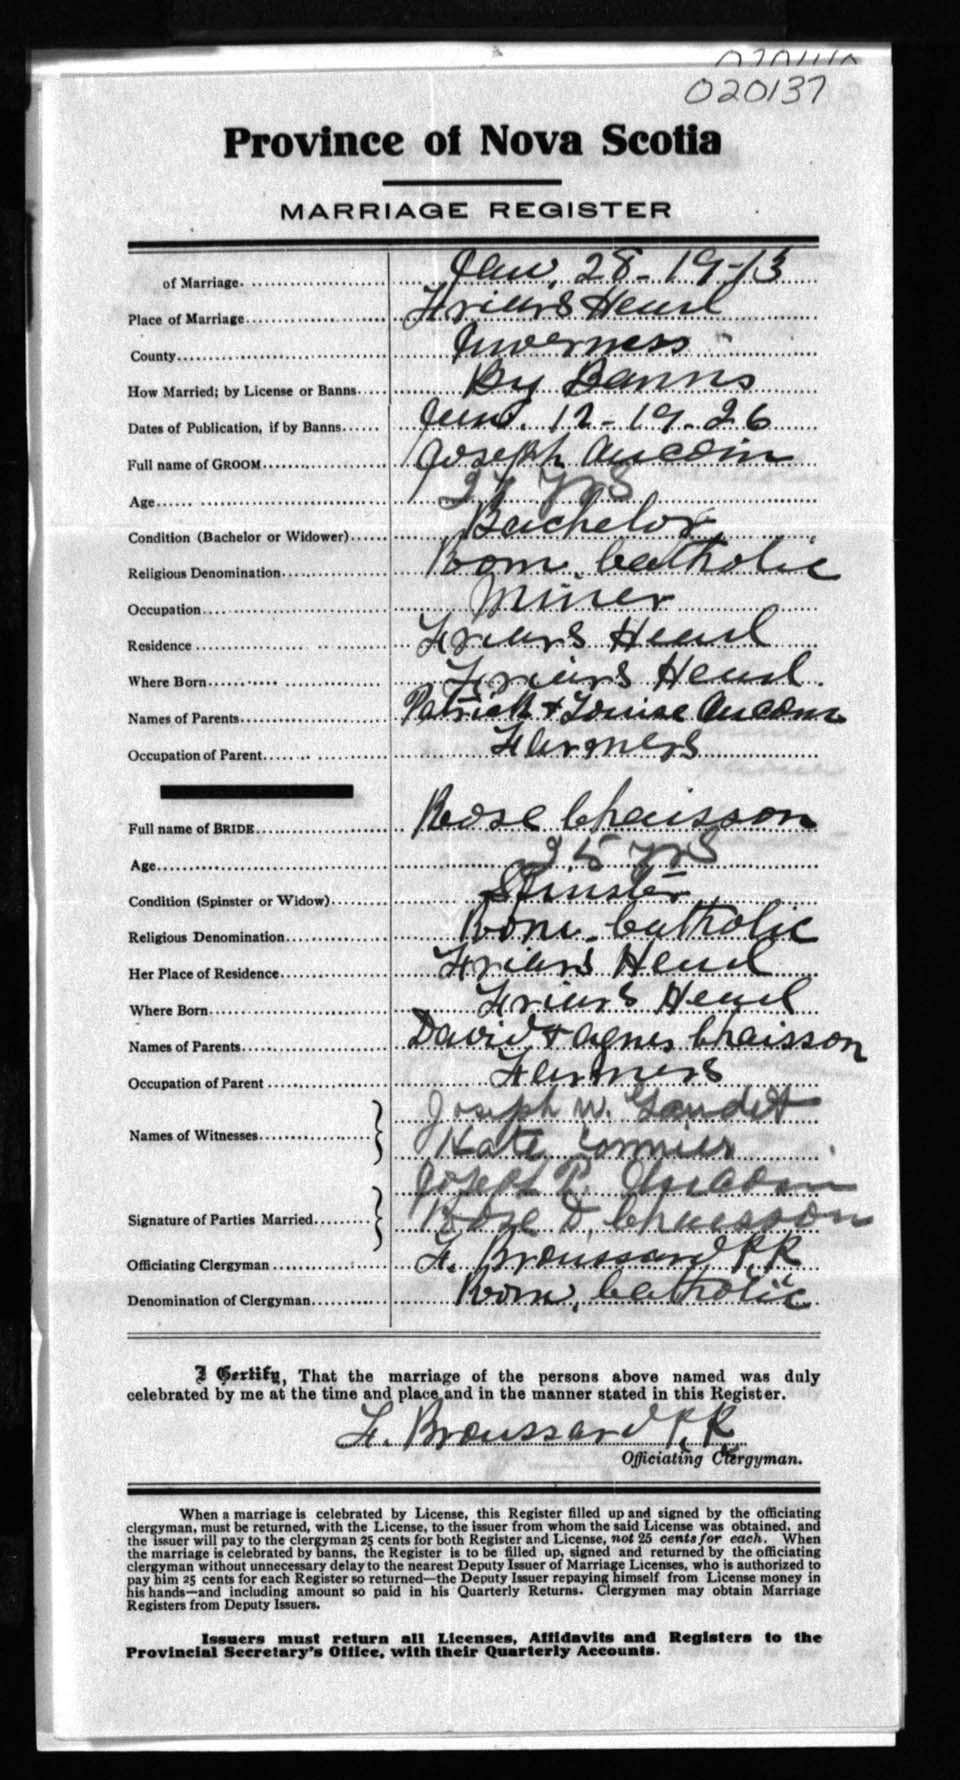 020137
Province of Nova Scotia
MARRIAGE REGISTER
of Marriage. Jan. 28 - 1913
Place of Marriage Friars Head
County Inverness
How Married; by License or Banns By Banns
Dates of Publication, if by Banns Jan. 12 - 19 - 26
Full name of GROOM Joseph Aucoin
Age yrs
Condition (Bachelor or Widower) Bachelor
Religious Denomination Rom. Catholic
Occupation Miner
Residence Friars Head
Where Born Friars Head.
Names of Parents Patrick & Louise Aucoin
Occupation of Parent Farmers
Full name of BRIDE Rose Chaisson
Age 25 yrs
Condition (Spinster or Widow) Spinster
Religious Denomination Rom. Catholic
Her Place of Residence Friars Head
Where Born Friars Head
Names of Parents David & Agnes Chaisson
Occupation of Parent Farmers
Names of Witnesses Joseph W. Gaudet
Kate Cormier
Signature of Parties Married Joseph P. Aucoin
Rose D. Chaisson
Officiating Clergyman F. Broussard P.P.
Denomination of Clergyman Rom. Catholic
I Certify, That the marriage of the persons above named was duly
celebrated by me at the time and place and in the manner stated in this Register.
F. Broussard P.P.
Officiating Clergyman.
When a marriage is celebrated by License, this Register filled up and signed by the officiating
clergyman, must be returned, with the License, to the issuer from whom the said License was obtained, and
the issuer will pay to the clergyman 25 cents for both Register and License, not 25 cents for each. When
the marriage is celebrated by banns, the Register is to be filled up, signed and returned by the officiating
clergyman without unnecessary delay to the nearest Deputy Issuer of Marriage Licenses, who is authorized to
pay him 25 cents for each Register so returned—the Deputy Issuer repaying himself from License money in
his hands—and including amount so paid in his Quarterly Returns. Clergymen may obtain Marriage
Registers from Deputy Issuers.
Issuers must return all Licenses, Affidavits and Registers to the
Provincial Secretary's Office, with their Quarterly Accounts.